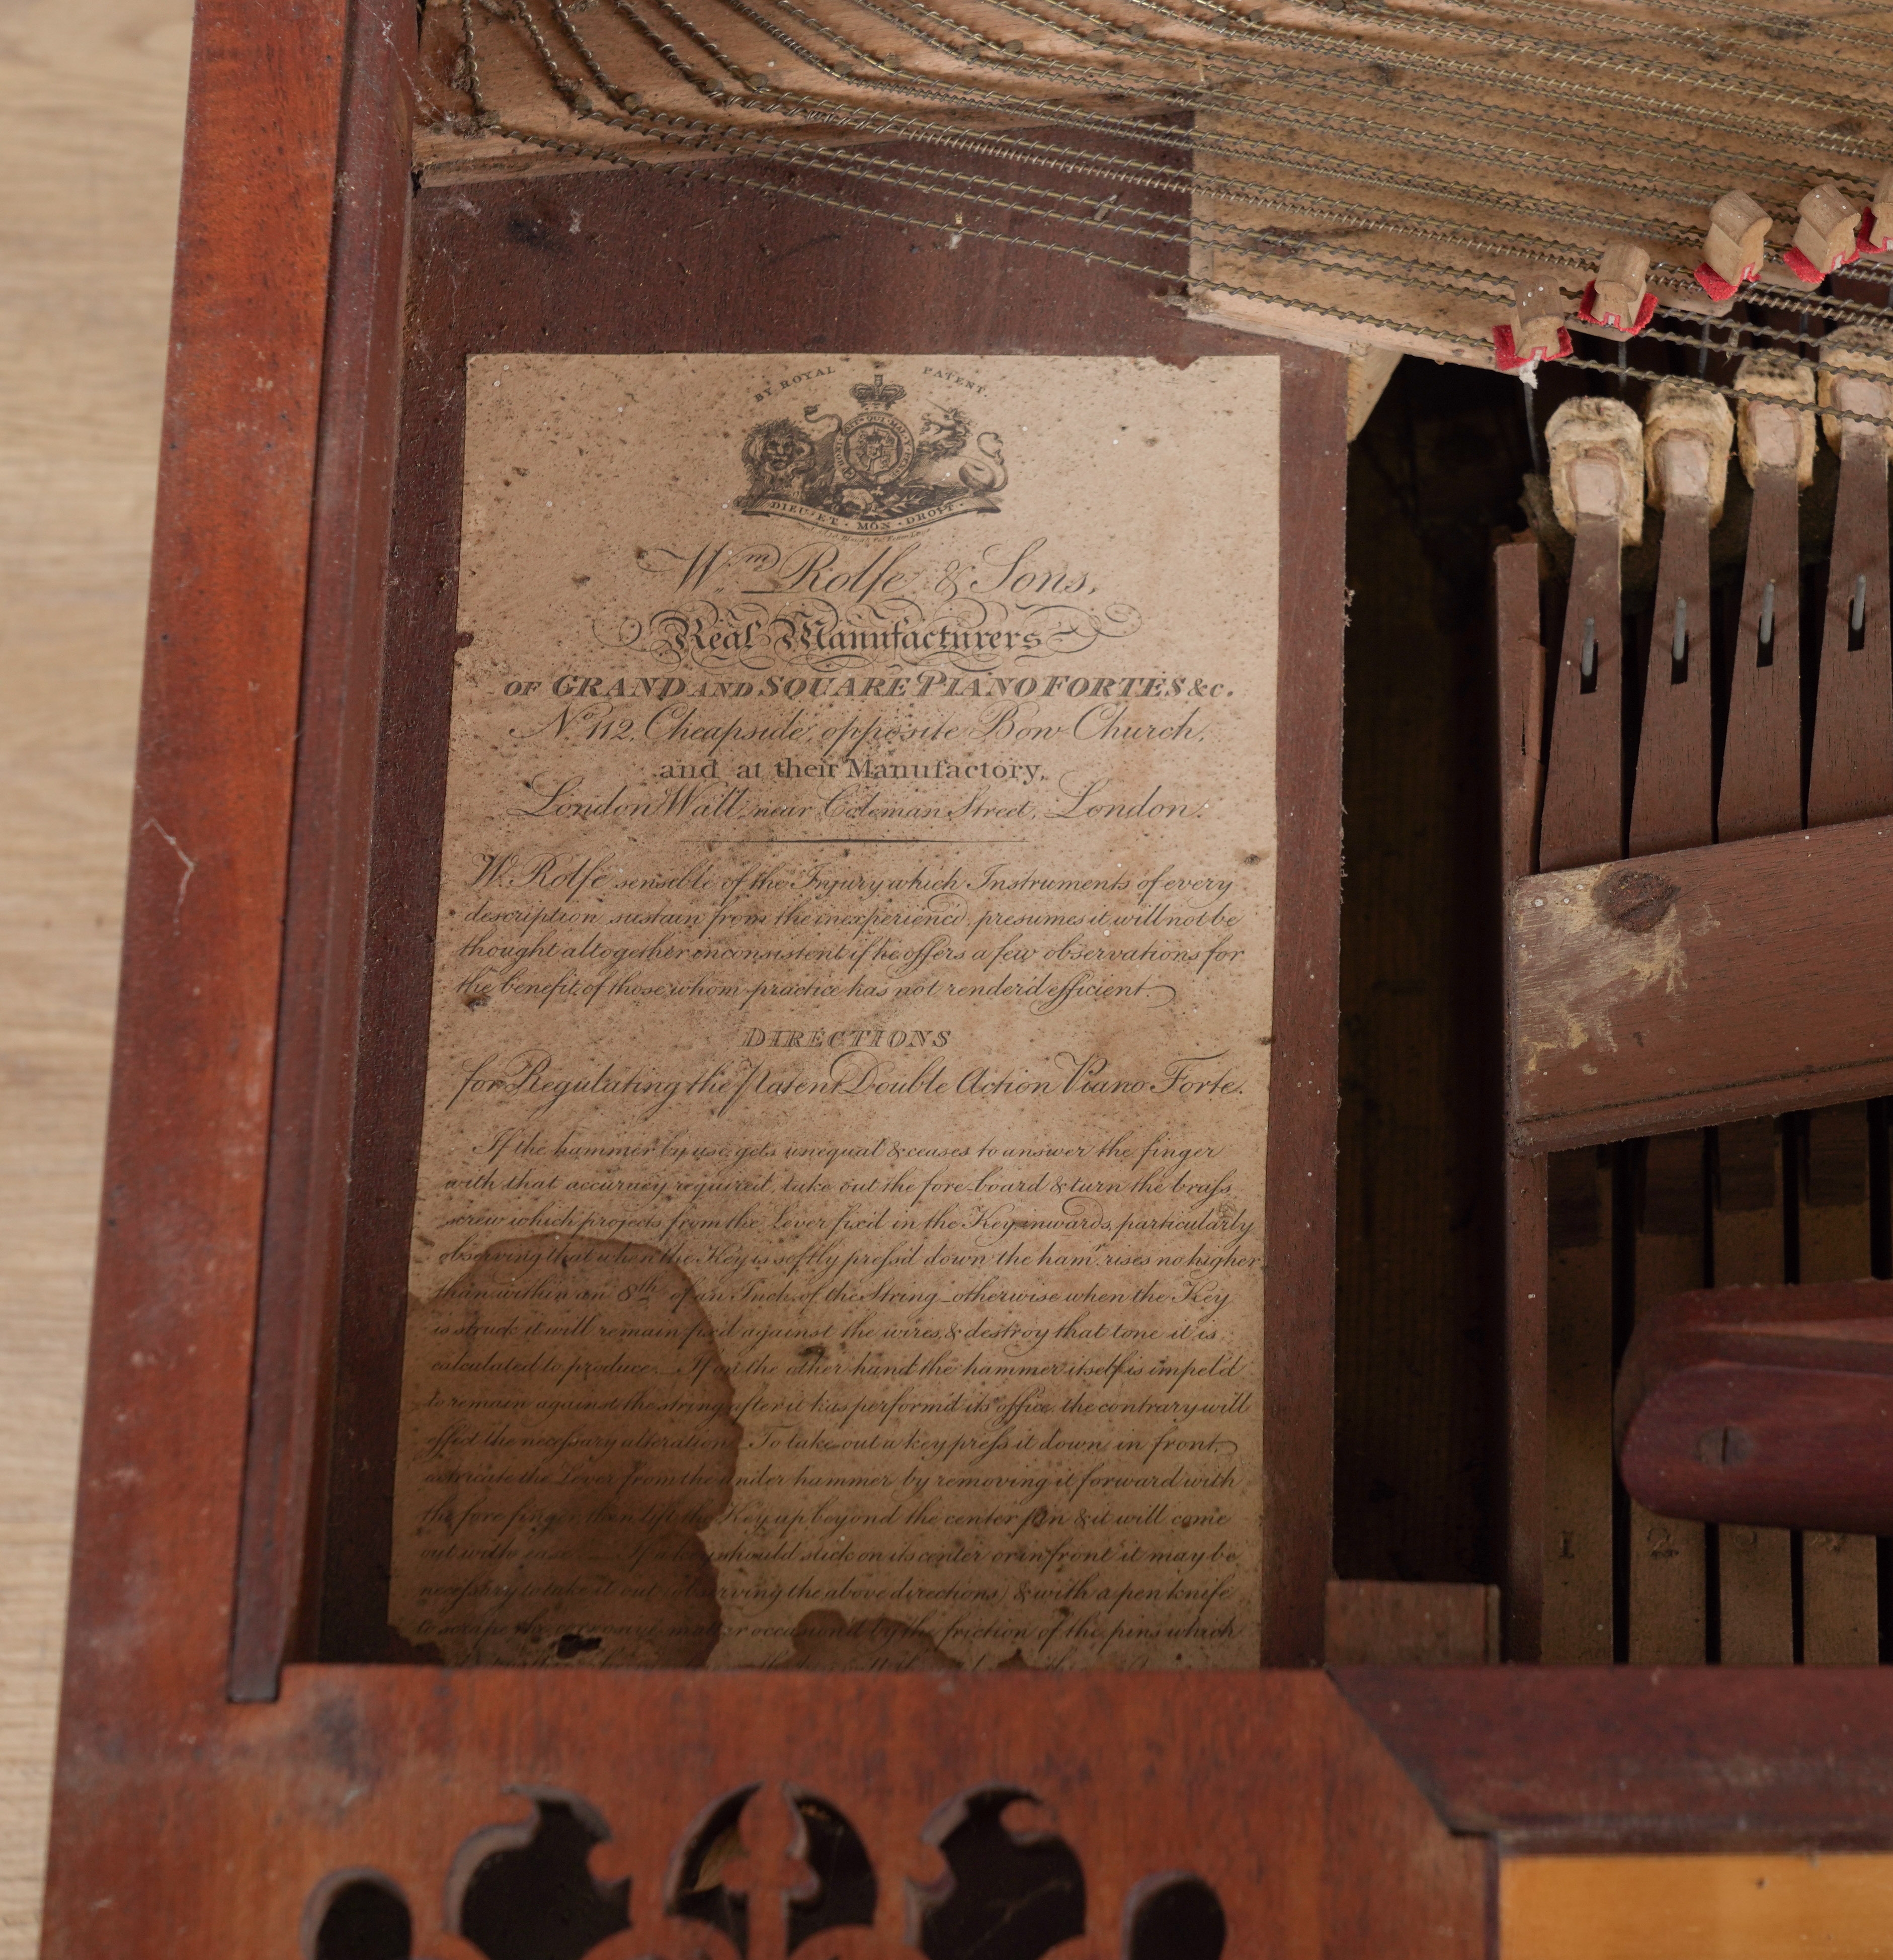 BY ROYAL PATENT.
HONI SOIT QUI MAL Y
DIEU ET MON DROIT
Wm. Rolfe & Sons,
Real Manufacturers
OF GRAND AND SQUARE PIANO FORTES &c.
No. 112, Cheapside, opposite Bow Church,
and at their Manufactory,
London Wall, near Coleman Street, London.
W. Rolfe sensible of the Injury which Instruments of every
description sustain from the inexperienc'd, presumes it will not be
thought altogether inconsistent if he offers a few observations for
the benefit of those whom practice has not render'd efficient.
DIRECTIONS
for Regulating the Patent Double Action Piano Forte.
If the hammer by use gets unequal & ceases to answer the finger
with that accuracy required, take out the fore-board & turn the brass
screw which projects from the Lever fix'd in the Key inwards, particularly
observing that when the Key is softly press'd down the hamr. rises no higher
than within an 8th of an Inch of the String otherwise when the Key
is struck it will remain fix'd against the wires, & destroy that tone it is
calculated to produce. If on the other hand the hammer itself is impel'd
to remain against the string after it has perform'd its office, the contrary will
effect the necessary alteration. To take out a key press it down in front,
extricate the Lever from the under hammer by removing it forward with
the fore finger, then lift the Key up beyond the center pin & it will come
out with ease. If a key should stick on its center or in front it may be
necessary to take it out (observing the above directions) & with a pen knife
to scrape the corrosive matter occasion'd by the friction of the pins which
1 2 3 4